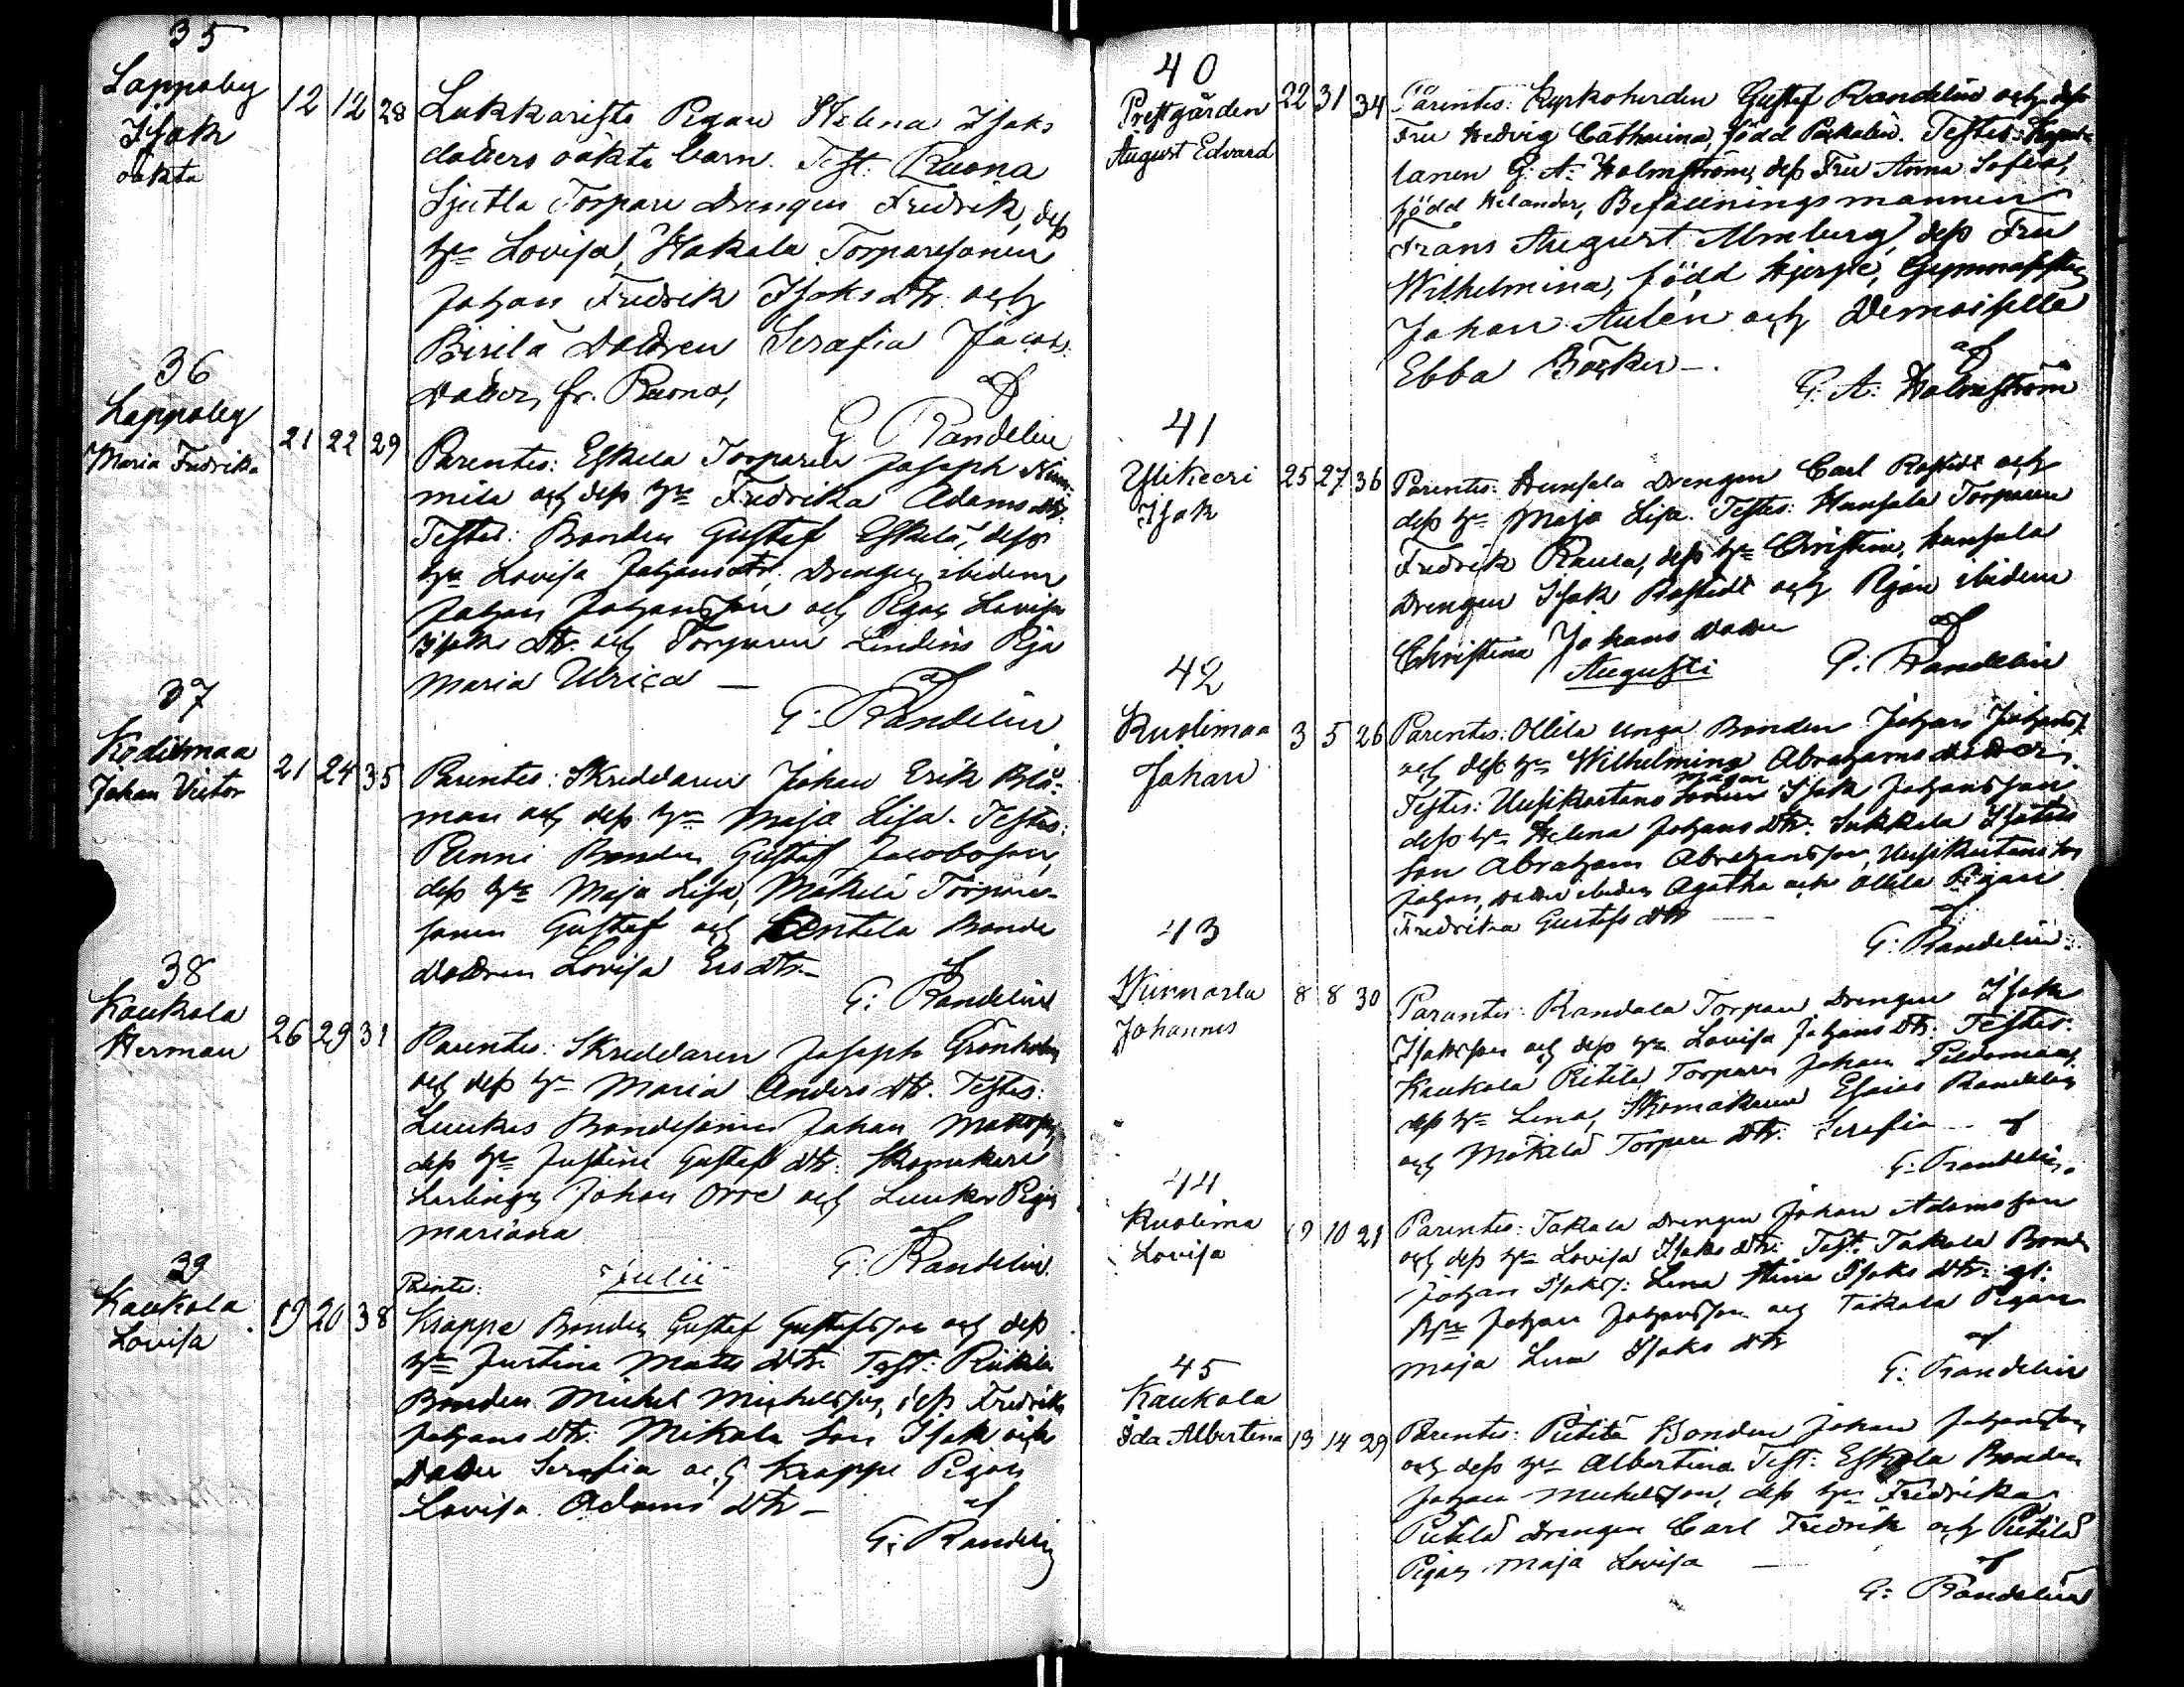 35
Lappoby
Isak
oäkta
12 12 28
Lukkarists Pigan Helena Isaks
doters oäkta barn. Test: Ruona
Sjutla Torpare Drengen Fredrik, dess
hu Lovisa, Hakala Torparesonen
Johan Fredrik Isaks dtr och
Birilä Dottren Serafia Jacobs
dotter, fr. Ruona,
af
G Randelin
36
Lappoby
Maria Fredrika
21 22 29
Parentes: Eskela Torparen Joseph
och dess hu Fredrika Adams dtr.
Testes: Bonden Gustaf Eskelä, dess
hu Lovisa Johans dtr. Drengen ibidem
Johan Johansson och Pigan Lovisa
Isaks dtr. och Torparen Lindens Piga
Maria Ulrica —
af
G. Randelin
37
Kedilmaa
Johan Victor
21 24 35
Parentes: Skreddaren Johan Erik Blå-
man och dess hu Maja Lisa. Testes:
Punni Bonden Gustaf Jacobsson,
dess hu Maja Lisa, Mäkelä Torpare-
sonen Gustaf och Bonde
dottren Lovisa Ers dtr. —
af
G: Randelin
38
Kaukola
Herman
26 29 31
Parentes: Skreddaren Joseph Grönholm
och dess hu Maria Anders dtr. Testes:
Luukas Bondesonen Johan Mattsson,
dess hu Justina Gustafs dtr. Skomakare
Lärlingen Johan Orre och Luukas Pigan
Mariana
af
G: Randelin.
Julii
39
Kaukola
Lovisa
19 20 38
Parentes:
Knappe Bonden Gustaf Gustafsson och dess
hu Justina Matts dtr. Test: Rickala
Bonden Michel Michelsson, dess Fredrika
Johans dtr. Mikola Son Isak och
Dotter Serafia och Knappe Pigan
Lovisa Adams dtr —
af
G: Randelin
40
Prestgården
August Edvard
22 31 34
Parentes: Kyrkoherden Gustaf Randelin och dess
Fru Hedvig Catharina, född Paskalin. Testes: Kapel-
lanen G: A: Holmström, dess Fru Anna Sofia,
född Helander, Befallningsmannen
Frans August Almberg, dess Fru
Wilhelmina, född Hjerpe, Gymnasisten
Johan Aulén och Demoiselle
Ebba Böcker —.
af
G: A: Holmström
41
Ylikecri
Isak
25 27 36
Parentes: Hunsala Drengen Carl Rostedt och
dess hu Maja Lisa. Testes: Hunsala Torparen
Fredrik Raula, dess hu Christina, Hunsala
Drengen Isak Rostedt och Pigan ibidem
Christina Johans dotter
af
G: Randelin
Augusti
42
Kuolimaa
Johan
3 5 26
Parentes: Ollila unga Bonden Johan Johanss.
och dess hu Wilhelmina Abrahams dotter.
Testes: Uusikartano mågen Isak Johansson
dess hu Helena Johans dtr. Sukkala
Son Abraham Abrahamsson, Uusikartano son
Johan, dotter ibidem Agatha och Ollila Pigan
Fredrika Gustafs dtr —
af
G: Randelin
43
Nummarla
Johannes
8 8 30
Parentes: Randala Torpare Drengen Isak
Isaksson och dess hu Lovisa Johans dtr. Testes:
Kaukola Pitilä Torparen Johan
dess hu Lena, Skomakaren Esaias Randelin
och Mäkelä Torpare dtr. Serafia — af
G. Randelin.
44
Kuolima
Lovisa
9 10 21
Parentes: Takala Drengen Johan Adamsson
och dess hu Lovisa Isaks dtr. Test. Takala Bonde
Johan Isakss: Lena Stina Isaks dtr:
Johan Johansson och Takala Pigan
Maja Lena Isaks dtr
af
G: Randelin
45
Kaukola
Ida Albertina
13 14 29
Parentes: Pietilä Bonden Johan Johansson
och dess hu Albertina. Test: Eskola Bonden
Johan Michelsson, dess hu Fredrika
Pietilä Drengen Carl Fredrik och Pietilä
Pigan Maja Lovisa —
af
G: Randelin